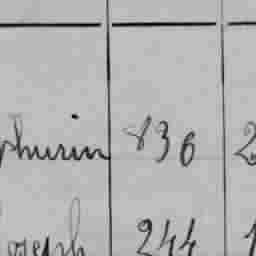 phurin 836 2
Joseph 244 1